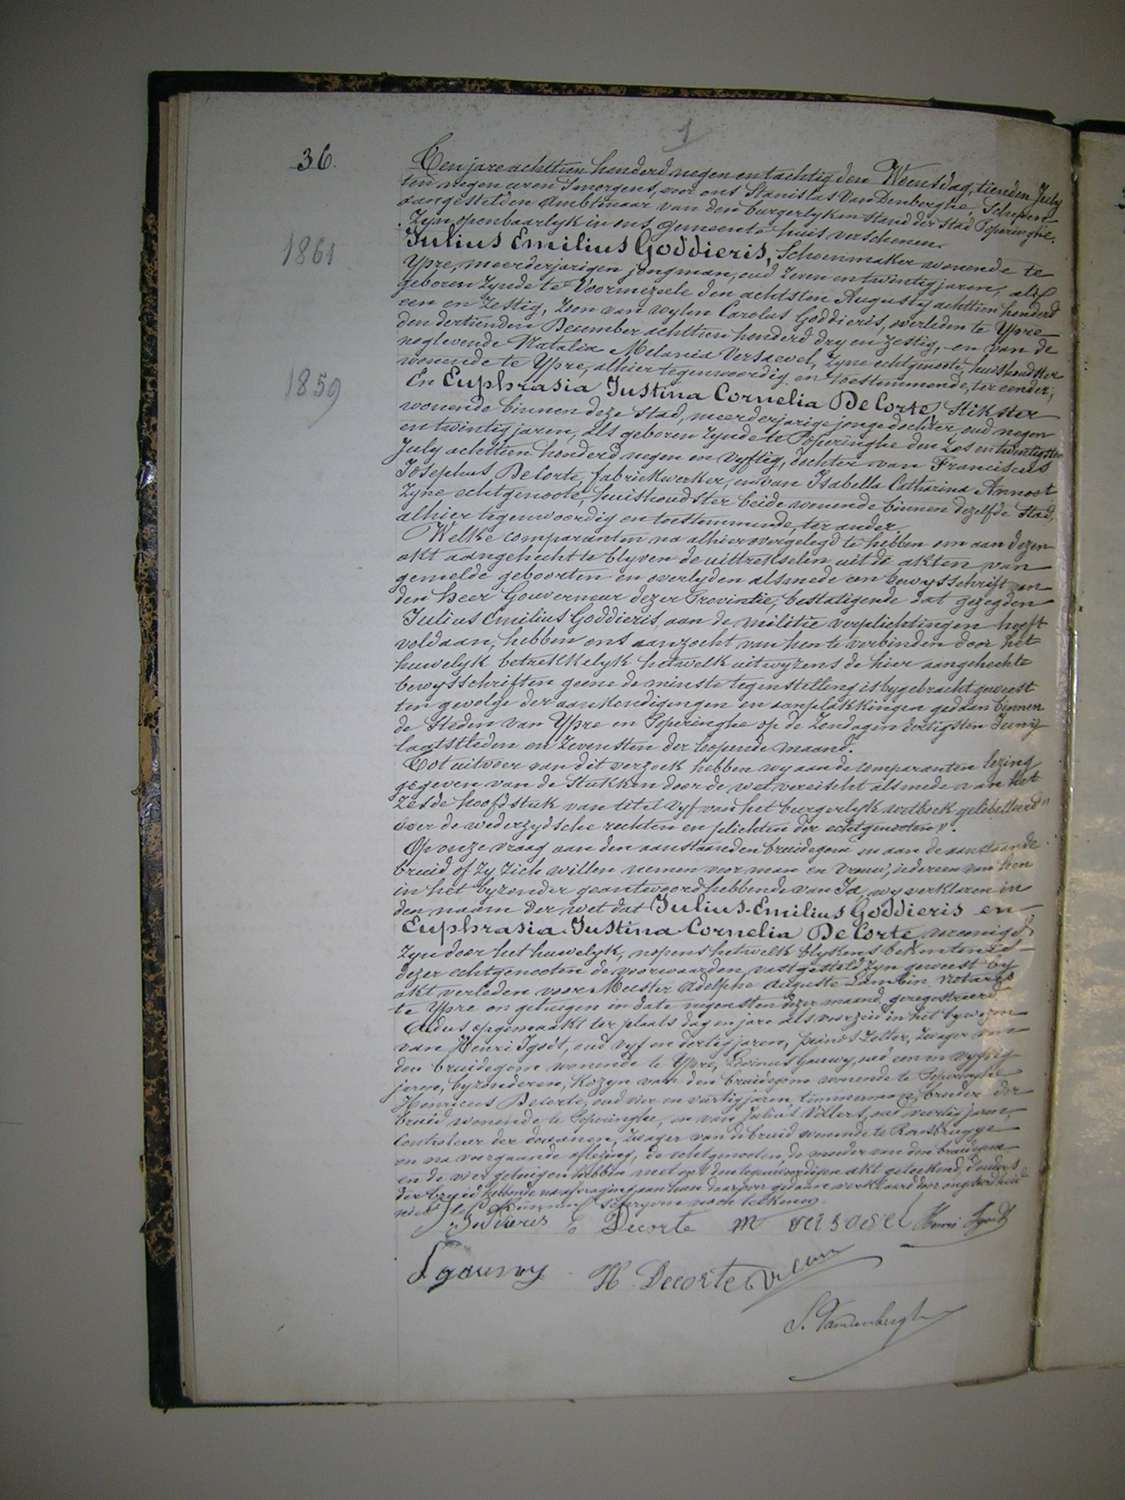 1
36.
Ten jare achttien honderd negen en tachtig den Woensdag, tienden July
ten negen uren 's morgens, voor ons Stanislas Van Denberghe, Schepen
aangestelden Ambtenaar van den burgerlyken stand der Stad Poperinghe.
Zyn openbaarlyk in ons gemeente huis verschenen.
Julius Emilius Goddieris, Schoenmaker wonende te
1861
Ypre, meerderjarigen jongman, oud zeven en twintig jaren, als
geboren zynde te Voormezeele den achtsten Augusty achttien honderd
een en zestig, zoon van wylen Carolus Goddieris, overleden te Ypre
den dertienden December achttien honderd dry en zestig, en van de
noglevende Natalia Melania Versaevel, zyne echtgenoote, huishoudster
wonende te Ypre, alhier tegenwoordig en toestemmende, ter eender,
1859
En Euphrasia Justina Cornelia De Corte, Stikster
wonende binnen deze Stad, meerderjarige jonge dochter, oud negen
en twintig jaren, als geboren zynde te Poperinghe den zes en twintigsten
July achttien honderd negen en vyftig, dochter van Franciscus
Josephus De Corte, fabriekwerker, en van Isabella Catharina Annost
zyne echtgenoote, huishoudster beide wonende binnen dezelfde Stad,
alhier tegenwoordig en toestemmende, ter ander.
Welke comparanten na alhier voorgelegd te hebben om aan dezen
akt aangehecht te blyven de uittrekselen uit de akten van
gemelde geboorten en overlyden alsmede een bewysschrift van
den heer Gouverneur dezer Provintie, bestatigende dat gezegden
Julius Emilius Goddieris aan de militie verplichtingen heeft
voldaan, hebben ons aanzocht van hen te verbinden door het
huwelyk betrekkelyk hetwelk uitwyzens de hier aangehechte
bewysschriften geene de minste tegenstelling is bygebracht geweest
ten gevolge der aankondigingen en aanplakkingen gedaan binnen
de Steden van Ypre en Poperinghe op de Zondagen dertigsten Juny
laatstleden en zevensten der loopende maand.
Tot uitvoer van dit verzoek hebben wy aan de comparanten lezing
gegeven van de stukken door de wet vereischt alsmede van het
zesde hoofdstuk van titel vyf van het burgerlyk wetboek getitelleerd "
over de wederzydsche rechten en plichten der echtgenooten".
Op onze vraag aan den aanstaanden bruidegom en aan de aanstaande
bruid of zy zich willen nemen voor man en vrouw, iedereen van hen
in het byzonder geantwoord hebbende van Ja, wy verklaren in
den naam der wet dat Julius Emilius Goddieris en
Euphrasia Justina Cornelia De Corte vereenigd
zyn door het huwelyk, nopens hetwelk blykens bekentenis
dezer echtgenooten de voorwaarden vastgesteld zyn geweest by
akt verleden voor Meester Adolphe Auguste Lambin Notaris
te Ypre en getuigen in date negensten dezer maand geregistreerd
Aldus opgemaakt ter plaats dag en jare als voorzeid in het bywezen
van Henri Igodt, oud vyf en dertig jaren, zwager van
den bruidegom wonende te Ypre, Gouwy, oud een en vyftig
jaren, byzonderen, kozyn van den bruidegom wonende te Poperinghe
Henricus Decorte, oud vier en veertig jaren, timmerman, broeder der
bruid wonende te Poperinghe, en van Julius Villers, oud veertig jaren,
controleur der douanen, zwager van de bruid wonende te Rousbrugge
en na voorgaande aflezing, de echtgenooten, de moeder van den bruidegom
en de vier getuigen hebben met ons den tegenwoordigen akt geteekend, d'ouders
der bruid hebbende na afvraging aan hun daarover gedaan verklaard door ongeleerdheid
niet te kunnen schryven noch teekenen.
J Goddieris E Decorte M versavel Henri Igodt
L gouwy H. Decorte Villers
S. Vandenberghe